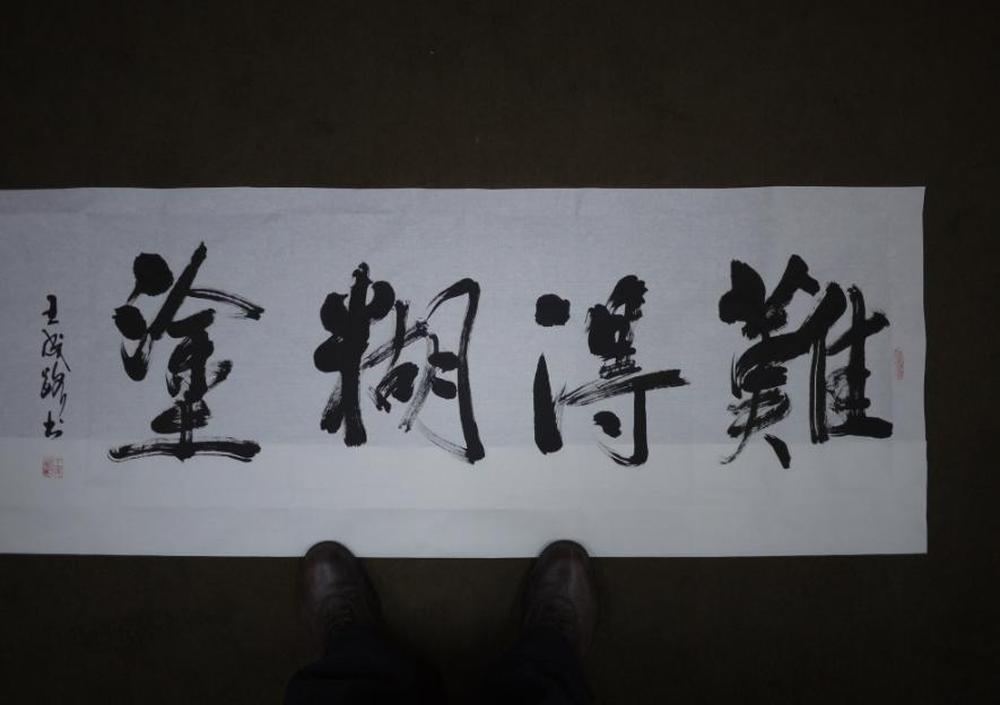 難得糊塗
王成書